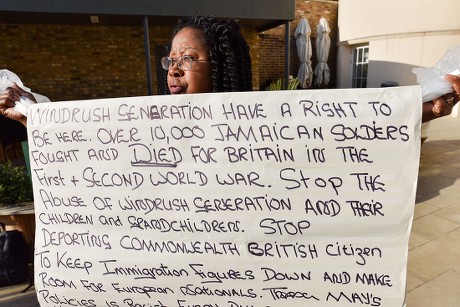 WINDRUSH GENERATION HAVE A RIGHT TO
BE HERE. OVER 10,000 JAMAICAN SOLDIERS
FOUGHT AND DIED FOR BRITAIN IN THE
FIRST + SECOND WORLD WAR. STOP THE
ABUSE OF WINDRUSH GENERATION AND THEIR
CHILDREN AND GRANDCHILDREN. STOP
DEPORTING COMMONWEALTH BRITISH CITIZEN
TO KEEP IMMIGRATION FIGURES DOWN AND MAKE
ROOM FOR EUROPEAN NATIONALS. MAY'S
POLICIES IS RACIST EVERY